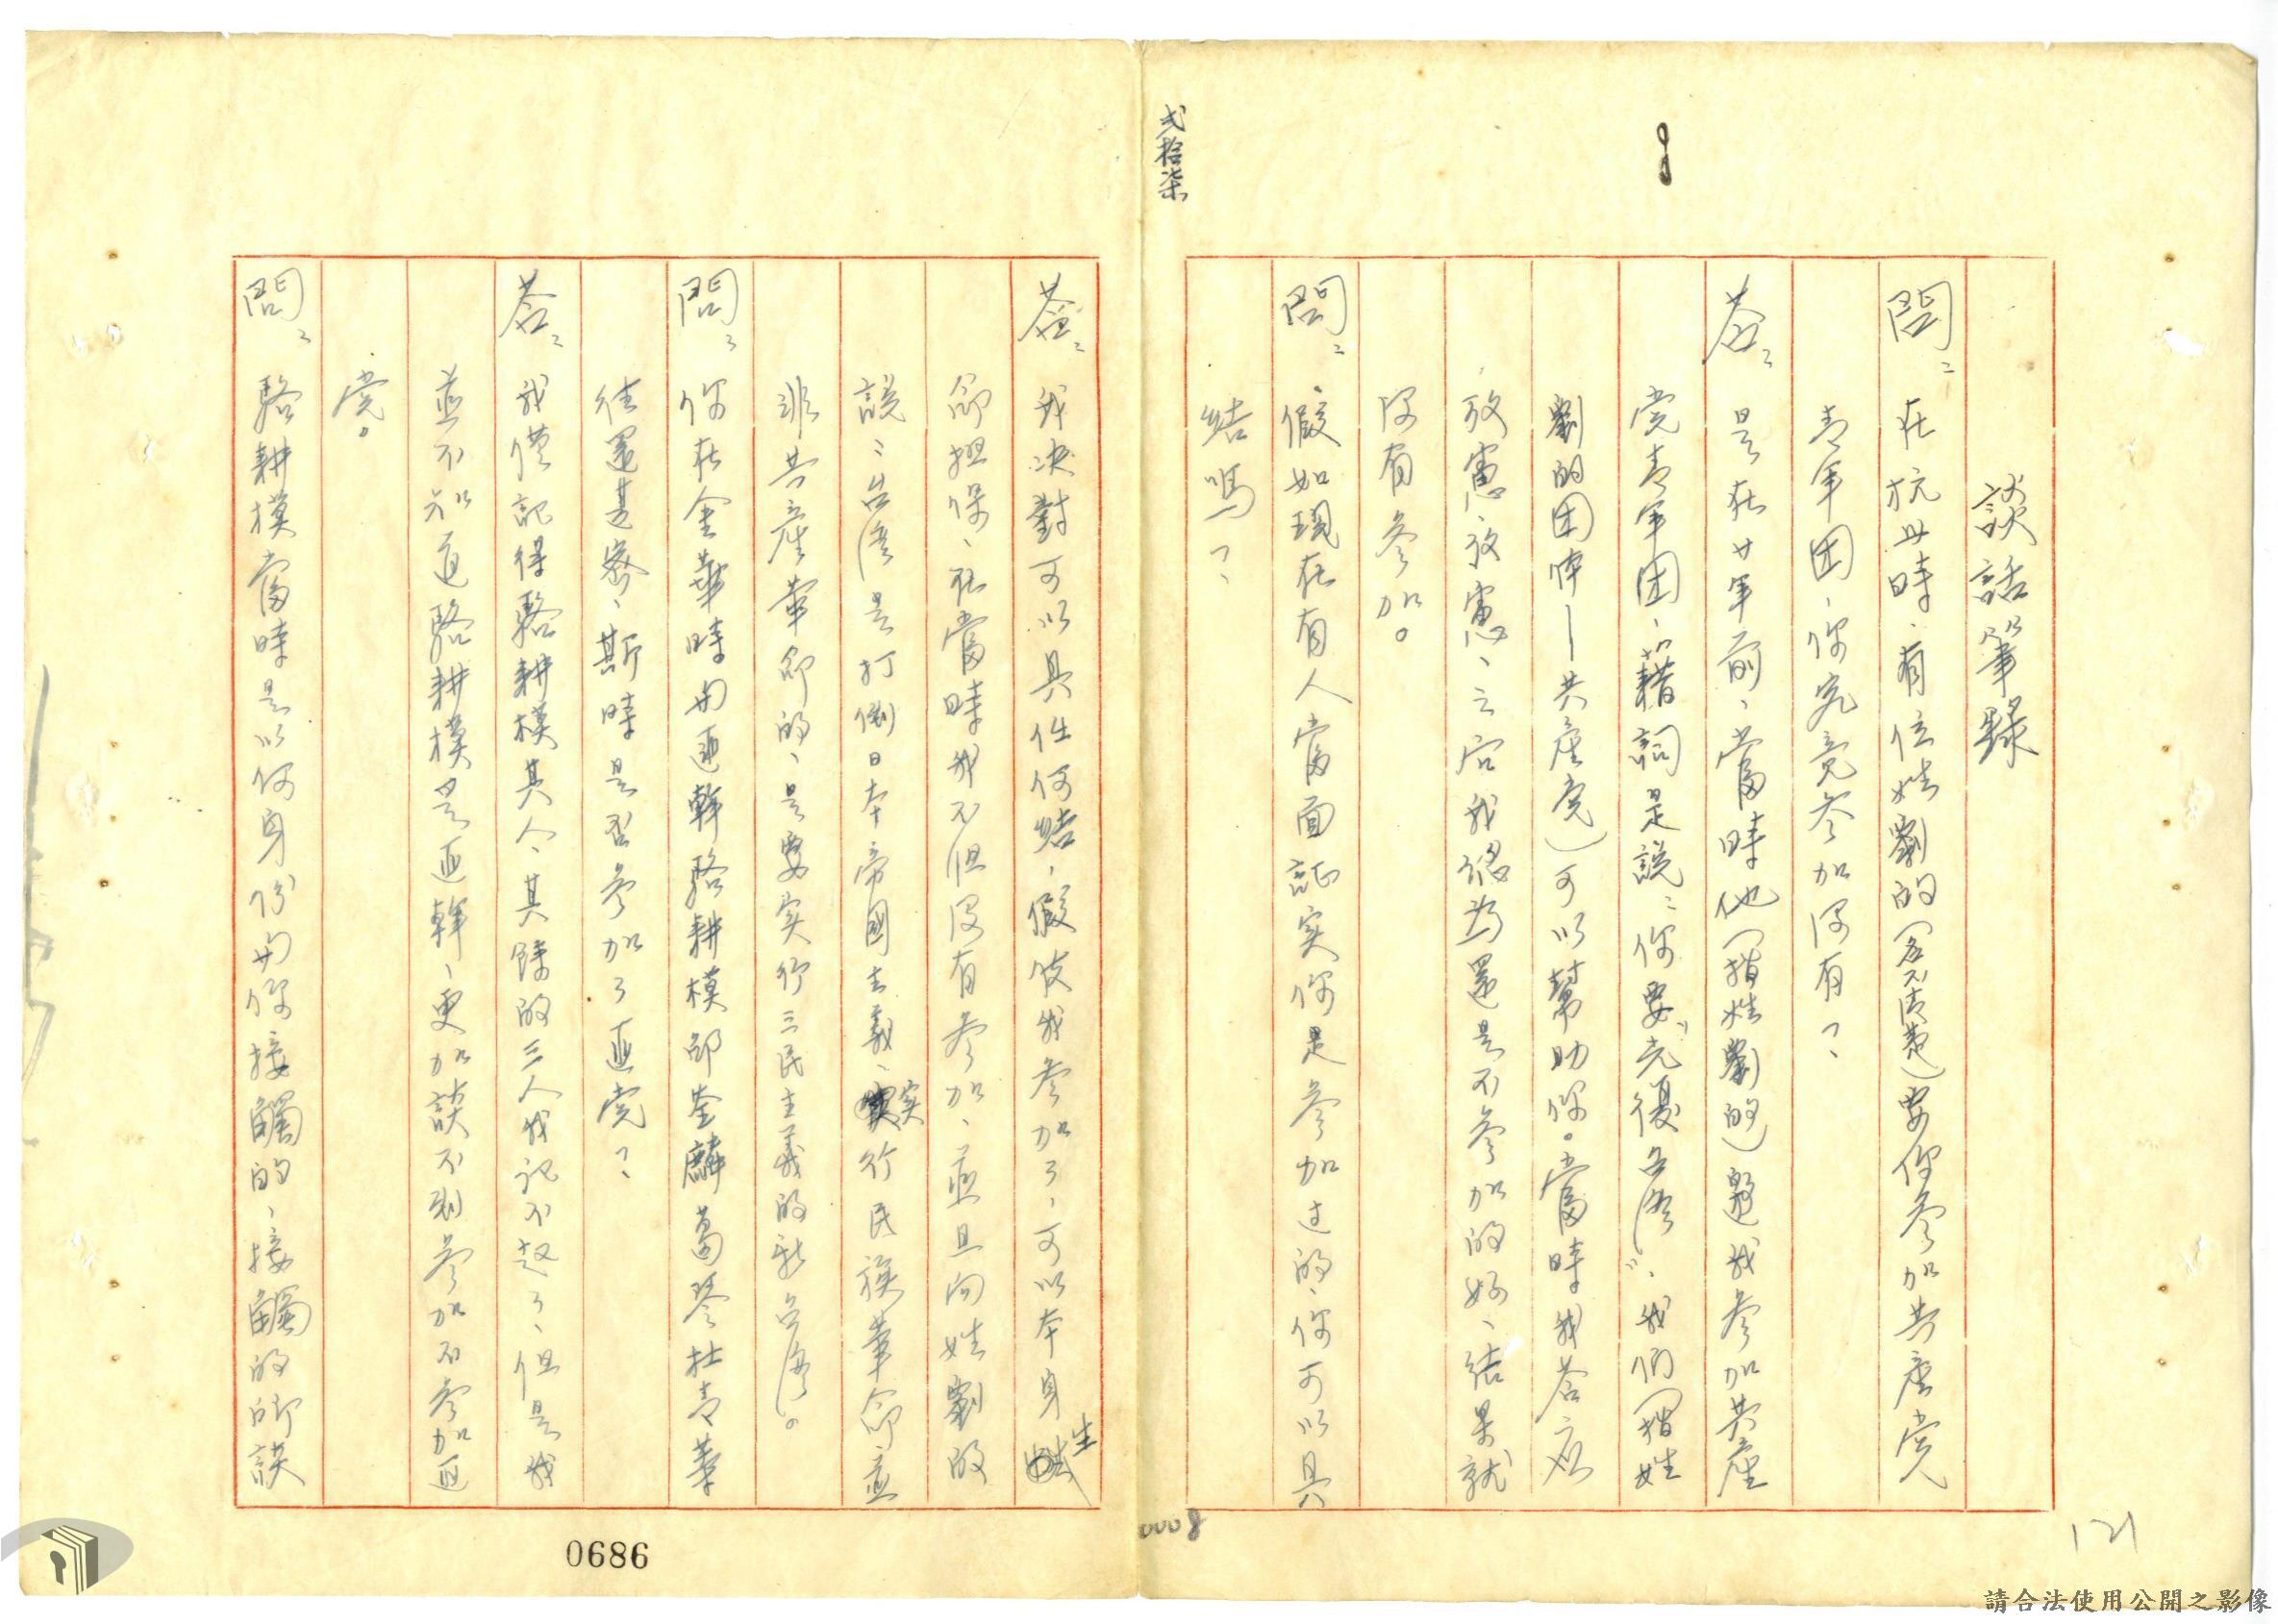 弍拾柒
談話筆錄
問:在抗卋時、有位姓劉的(名不清楚)要你參加共產党
青年团、你究竟參加没有?
荅:是在廿年前、當時他(指姓劉的)邀我參加共產
党青年团、藉詞是說:你要"光復台湾"、我們(指姓
劉的团体—共產党)可以幫助你。當時我荅应
攷慮攷慮、之后我認為還是不參加的好、結果就
没有參加。
問:假如現在有人當面証实你是參加过的、你可以具
結嗎?
荅:我决對可以具任何結、假使我參加了、可以本身生
命担保、在當時我不但没有參加、並且向姓劉的
說:台湾是打倒日本帝國主義、实行民族革命並
非共產革命的、是要实行三民主義的新台湾。
問:你在金華時与匪幹駱耕模邵荃麟葛琴杜青等
往還甚密、斯時是否參加了匪党?
荅:我僅記得駱耕模其人、其餘的三人我記不起了、但是我
並不知道駱耕模是匪幹、更加談不到參加不參加匪
党。
問:駱耕模當時是以何身份与你接觸的、接觸的所談
0686
0008
121
請合法使用公開之影像